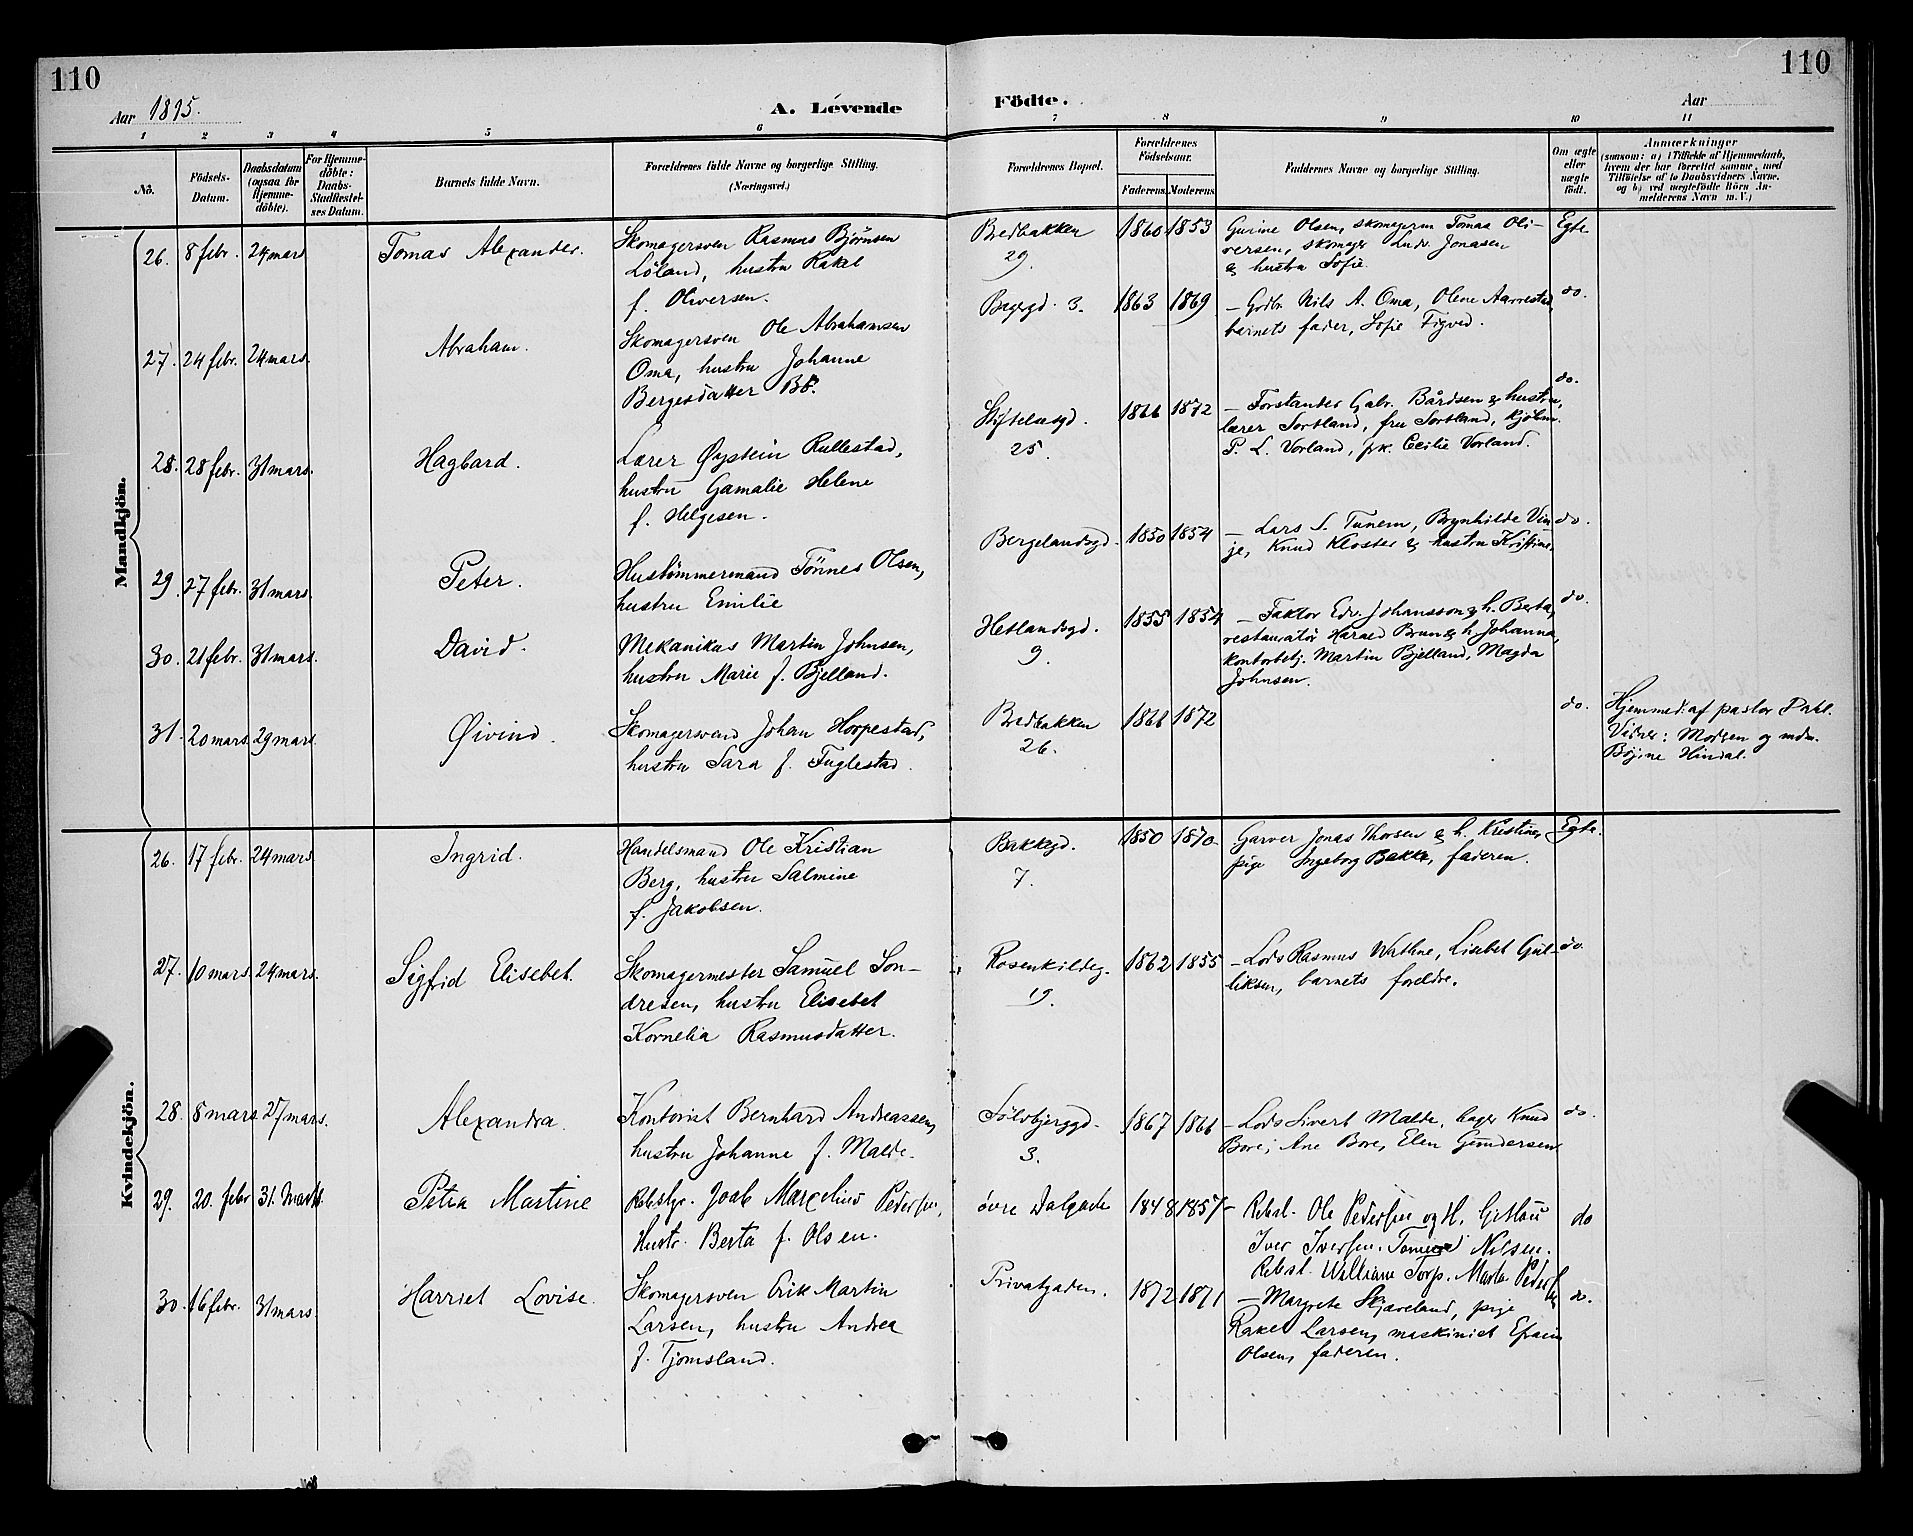 110
110
Aar 1895.
A. Levende
Födte.
Aar
1 2 3 4 5 6 7 8 9 10 11
No.
Födsels-
Datum.
Daabsdatum
(ogsaa for
Hjemme-
döbte).
For Hjemme-
döbte:
Daabs-
Stadfæstel-
ses Datum.
Barnets fulde Navn.
Forældrenes fulde Navne og borgerlige Stilling.
(Næringsvei.)
Forældrenes Bopæl.
Forældrenes
Födselsaar.
Faderens. Moderens.
Faddernes Navne og borgerlige Stilling.
Om ægte
eller
uægte
födt.
Anmærkninger
(saasom: a) i Tilfælde af Hjemmedaab,
hvem der har forrettet samme, med
Tilföielse af to Daabsvidners Navne.
og b) ved uægtefödte Börn An-
melderens Navn m. V.)
Mandkjön.
26. 8 febr. 24 mars Tomas Alexander.
Skomagersven Rasmus Bjørnsen
Löland, hustru Rakel
f. Oliversen.
Bredbakken
29.
1860 1853
Gurine Olsen, skomagerm Tomas Oli-
versen, skomager Ludv. Jonasen
& hustru Sofie.
Egte
27. 24 febr. 24 mars. Abraham.
Skomagersven Ole Abrahamsen
Oma, hustru Johanne
Bergesdatter Bö.
Bagergd. 3.
1863 1869
— Grdbr Nils A. Oma, Olene Aarrestad,
barnets fader, Sofie Tigved.
do.
28. 28 febr. 31 mars. Hagbard.
Lærer Øystein Rullestad,
hustru Gamalie Helene
f. Helgesen.
25.
1866 1872
— Forstander Gabr. Bårdsen & hustru,
lærer Sortland, fru Sortland, kjøbm.
P. L. Vorland, frk. Cecilie Vorland.
do.
29. 27 febr. 31 mars. Peter.
Hustömmermand Tönnes Olsen,
hustru Emilie
Bergelandsgd.
1850 1854
— Lars S. Tunem, Brynhilde Vin-
je, Knud Kloster & hustru Kristine.
do.
30. 21 febr. 31 mars. David.
Mekanikus Martin Johnsen,
hustru Marie f. Bjelland.
Hetlandsgd.
9.
1855 1854
— Faktor Edv. Johansson & h. Berta,
restauratør Harald Brun & h. Johanna,
kontorbetj. Martin Bjelland, Magda
Johnsen.
do.
31. 20 mars. 29 mars. Øivind.
Skomagersvend Johan Horpestad,
hustru Sara f. Fuglestad.
Bredbakken
26.
1866 1872
do.
Hjemmed. af pastor Dahl.
Vidner: Modren og mdm.
Hindal.
Kvindekjön.
26. 17 febr. 24 mars. Ingrid.
Handelsmand Ole Kristian
Berg, hustru Salmine
f. Jakobsen.
Bakkegd.
7.
1850 1870
Garver Jonas Thorsen & h. Kristine,
pige Ingeborg Bakke, faderen.
Egte.
27. 10 mars. 24 mars. Sigfrid Elisebet.
Skomagermester Samuel Son-
dresen, hustru Elisebet
Kornelia Rasmusdatter.
Rosenkildeg.
19.
1862 1855
— Lods Rasmus Wathne, Lisebet Gul-
liksen, barnets foreldre.
do.
28. 8 mars 27 mars. Alexandra.
Kontorist Bernhard Andreassen,
hustru Johanne f. Malde.
Sölvbjerggd.
3.
1867 1866
— Lods Sivert Malde, bager Knud
Bore, Ane Bore, Elen Gundersen
do.
29. 20. febr 31. Marts. Petra Martine
Rebslgr. Joab Marcelius Pedersen,
Hustr. Berta f. Olsen.
övre Dalgade
1848 1857
— Rebsl. Ole Pedersen og H.
Iver Iversen. Nilsen.
Rebsl. William Torp. Marta Pedersen
do
30. 16 febr. 31 mars. Harriet Lovise.
Skomagersven Erik Martin
Larsen, hustru Andrea
f. Tjomsland.
Privatgaden.
1872 1871
— Margrete Skjæveland, pige
Rakel Larsen, maskinist Efraim
Olsen, faderen.
do.